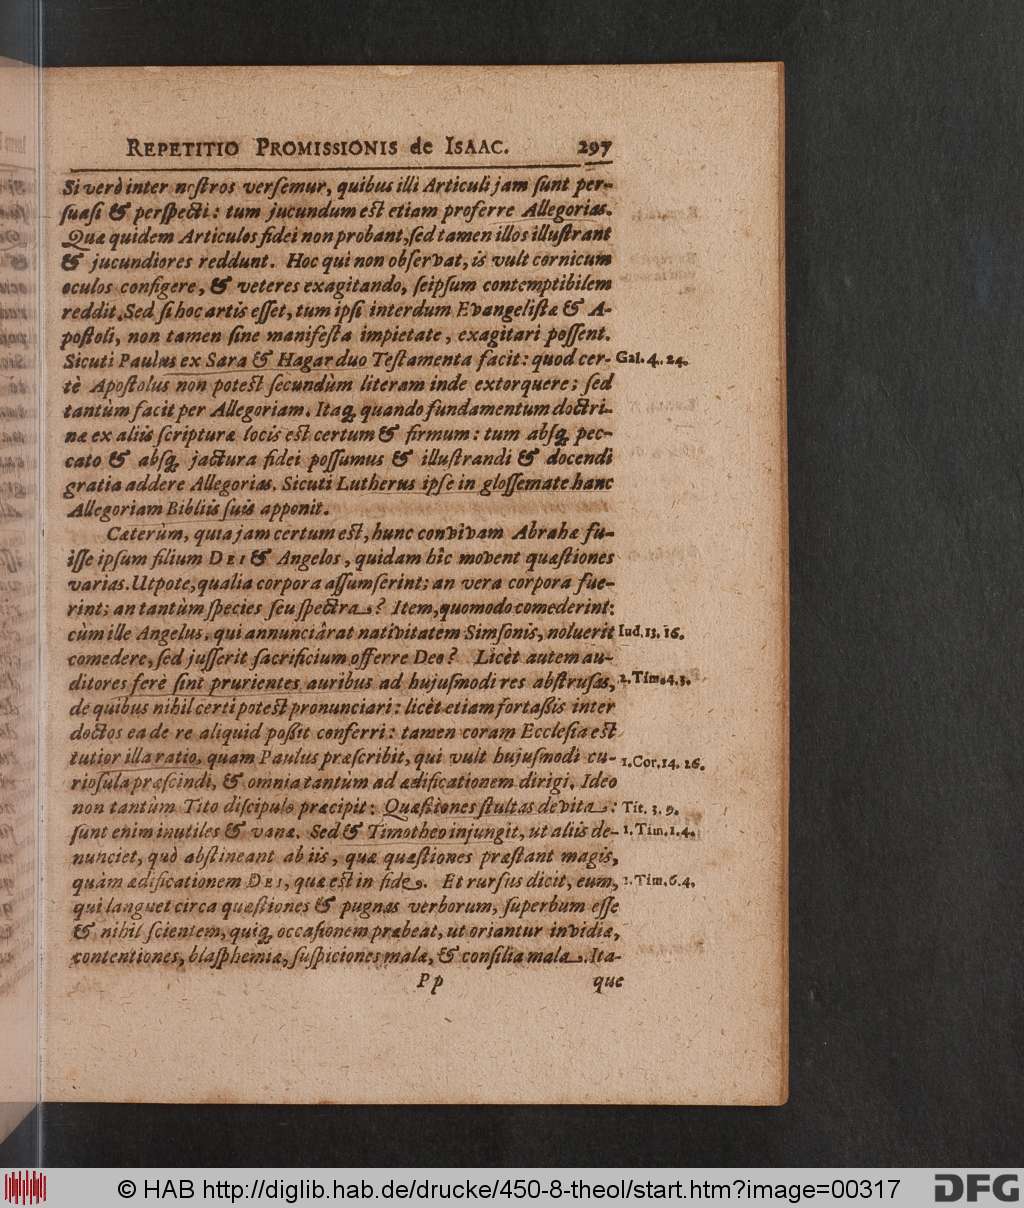 REPETITIO PROMISSIONIS de ISAAC. 297
Si verò inter noſtros verſemur, quibus illi Articuli jam ſunt per-
ſuaſi & perſpecti: tum jucundum eſt etiam proferre Allegorias.
Quæ quidem Articulos fidei non probant, ſed tamen illos illuſtrant
& jucundiores reddunt. Hoc qui non obſervat, is vult cornicum
oculos configere, & veteres exagitando, ſeipſum contemptibilem
reddit. Sed ſi hoc artis eſſet, tum ipſi interdum Evangeliſtæ & A-
poſtoli, non tamen ſine manifeſta impietate, exagitari poſſent.
Sicuti Paulus ex Sara & Hagar duo Teſtamenta facit: quod cer- Gal. 4. 24.
tè Apoſtolus non poteſt ſecundùm literam inde extorquere; ſed
tantùm facit per Allegoriam. Itaq; quando fundamentum doctri-
næ ex aliis ſcripturæ locis eſt certum & firmum: tum abſq; pec-
cato & abſq; jactura fidei poſſumus & illuſtrandi & docendi
gratia addere Allegorias. Sicuti Lutherus ipſe in gloſſemate hanc
Allegoriam Bibliis ſuis apponit.
Cæterùm, quia jam certum eſt, hunc convivam Abrahæ fu-
iſſe ipſum filium DEI & Angelos, quidam hîc movent quæſtiones
varias. Utpote, qualia corpora aſſumſerint; an vera corpora fue-
rint; an tantùm ſpecies ſeu ſpectra? Item, quomodo comederint:
cùm ille Angelus, qui annunciârat nativitatem Simſonis, noluerit Iud. 13. 16.
comedere, ſed juſſerit ſacrificium offerre Deo? Licèt autem au-
ditores ferè ſint prurientes auribus ad hujuſmodi res abſtruſas, 2. Tim. 4. 3.
de quibus nihil certi poteſt pronunciari: licèt etiam fortaſſis inter
doctos ea de re aliquid poſſit conferri: tamen coram Eccleſia eſt
tutior illa ratio, quam Paulus præſcribit, qui vult hujuſmodi cu- 1. Cor. 14. 26.
rioſula præſcindi, & omnia tantùm ad ædificationem dirigi. Ideo
non tantùm Tito diſcipulo præcipit: Quæſtiones ſtultas devita: Tit. 3. 9.
ſunt enim inutiles & vanæ. Sed & Timotheo injungit, ut aliis de- 1. Tim. 1. 4.
nunciet, quò abſtineant ab iis, quæ quæſtiones præſtant magis,
quàm ædificationem DEI, quæ eſt in fide. Et rurſus dicit, eum, 1. Tim. 6. 4.
qui languet circa quæſtiones & pugnas verborum, ſuperbum eſſe
& nihil ſcientem, quiq; occaſionem præbeat, ut oriantur invidiæ,
contentiones, blaſphemiæ, ſuſpiciones malæ, & conſilia mala. Ita-
Pp que
© HAB http://diglib.hab.de/drucke/450-8-theol/start.htm?image=00317 DFG